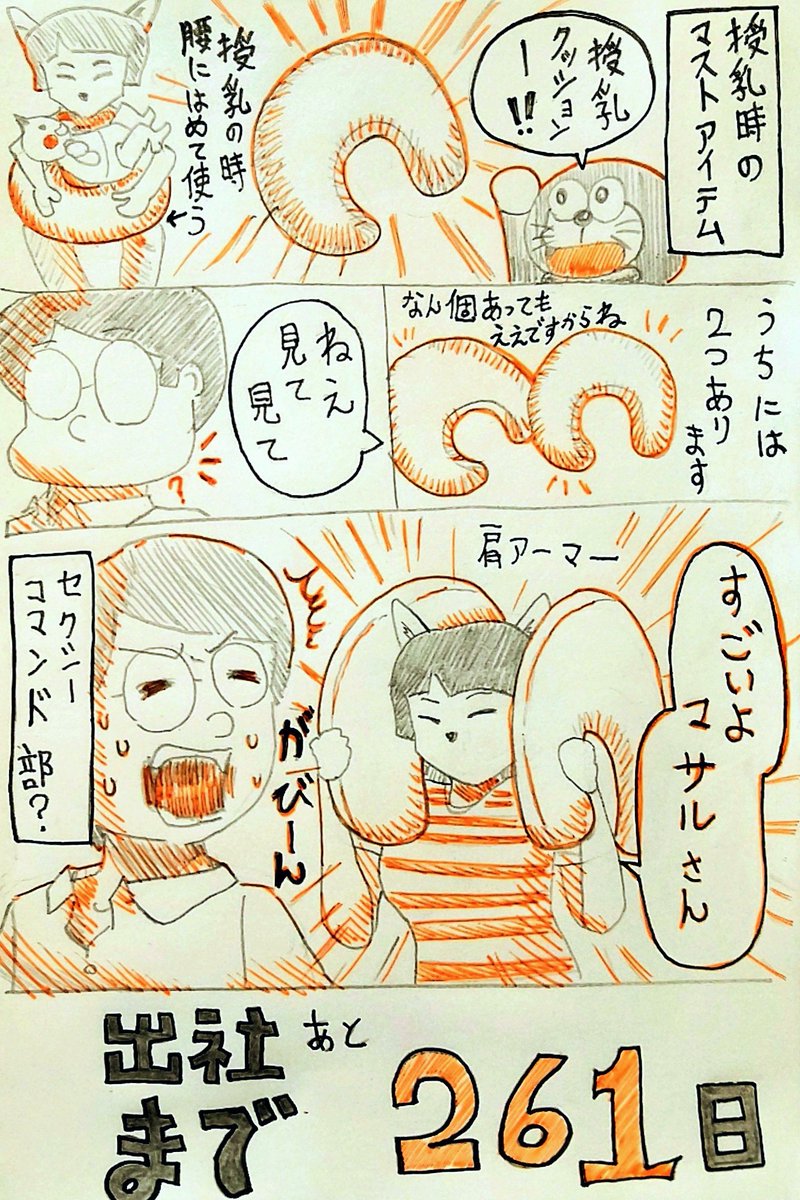 授乳時の
マストアイテム
授乳
クッション
ー!!
授乳の時
腰にはめて使う
うちには
2つあり
ます
なん個あっても
ええですからね
ねえ
見て
見て
?
肩アーマー
すごいよ
マサルさん
がびーん
セクシー
コマンド部?
出社
まで
あと
261日